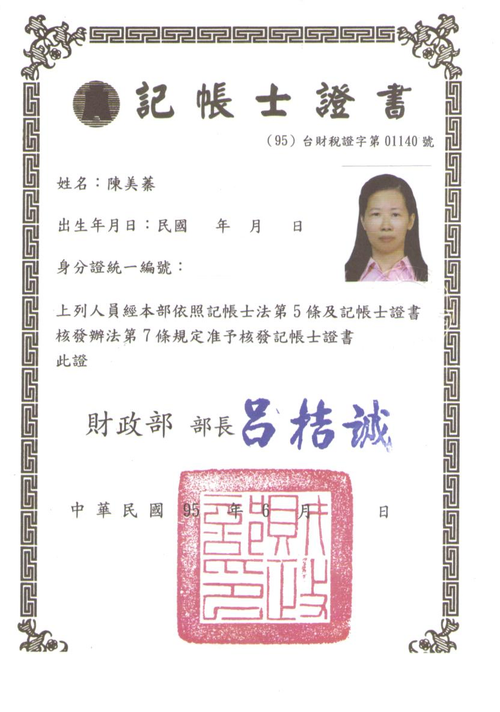 記帳士證書
(95) 台財稅證字第 01140 號
姓名：陳美蓁
出生年月日：民國　年　月　日
身分證統一編號：
上列人員經本部依照記帳士法第５條及記帳士證書
核發辦法第７條規定准予核發記帳士證書
此證
財政部 部長 呂桔誠
中華民國 95 年 6 月　日
財政部印